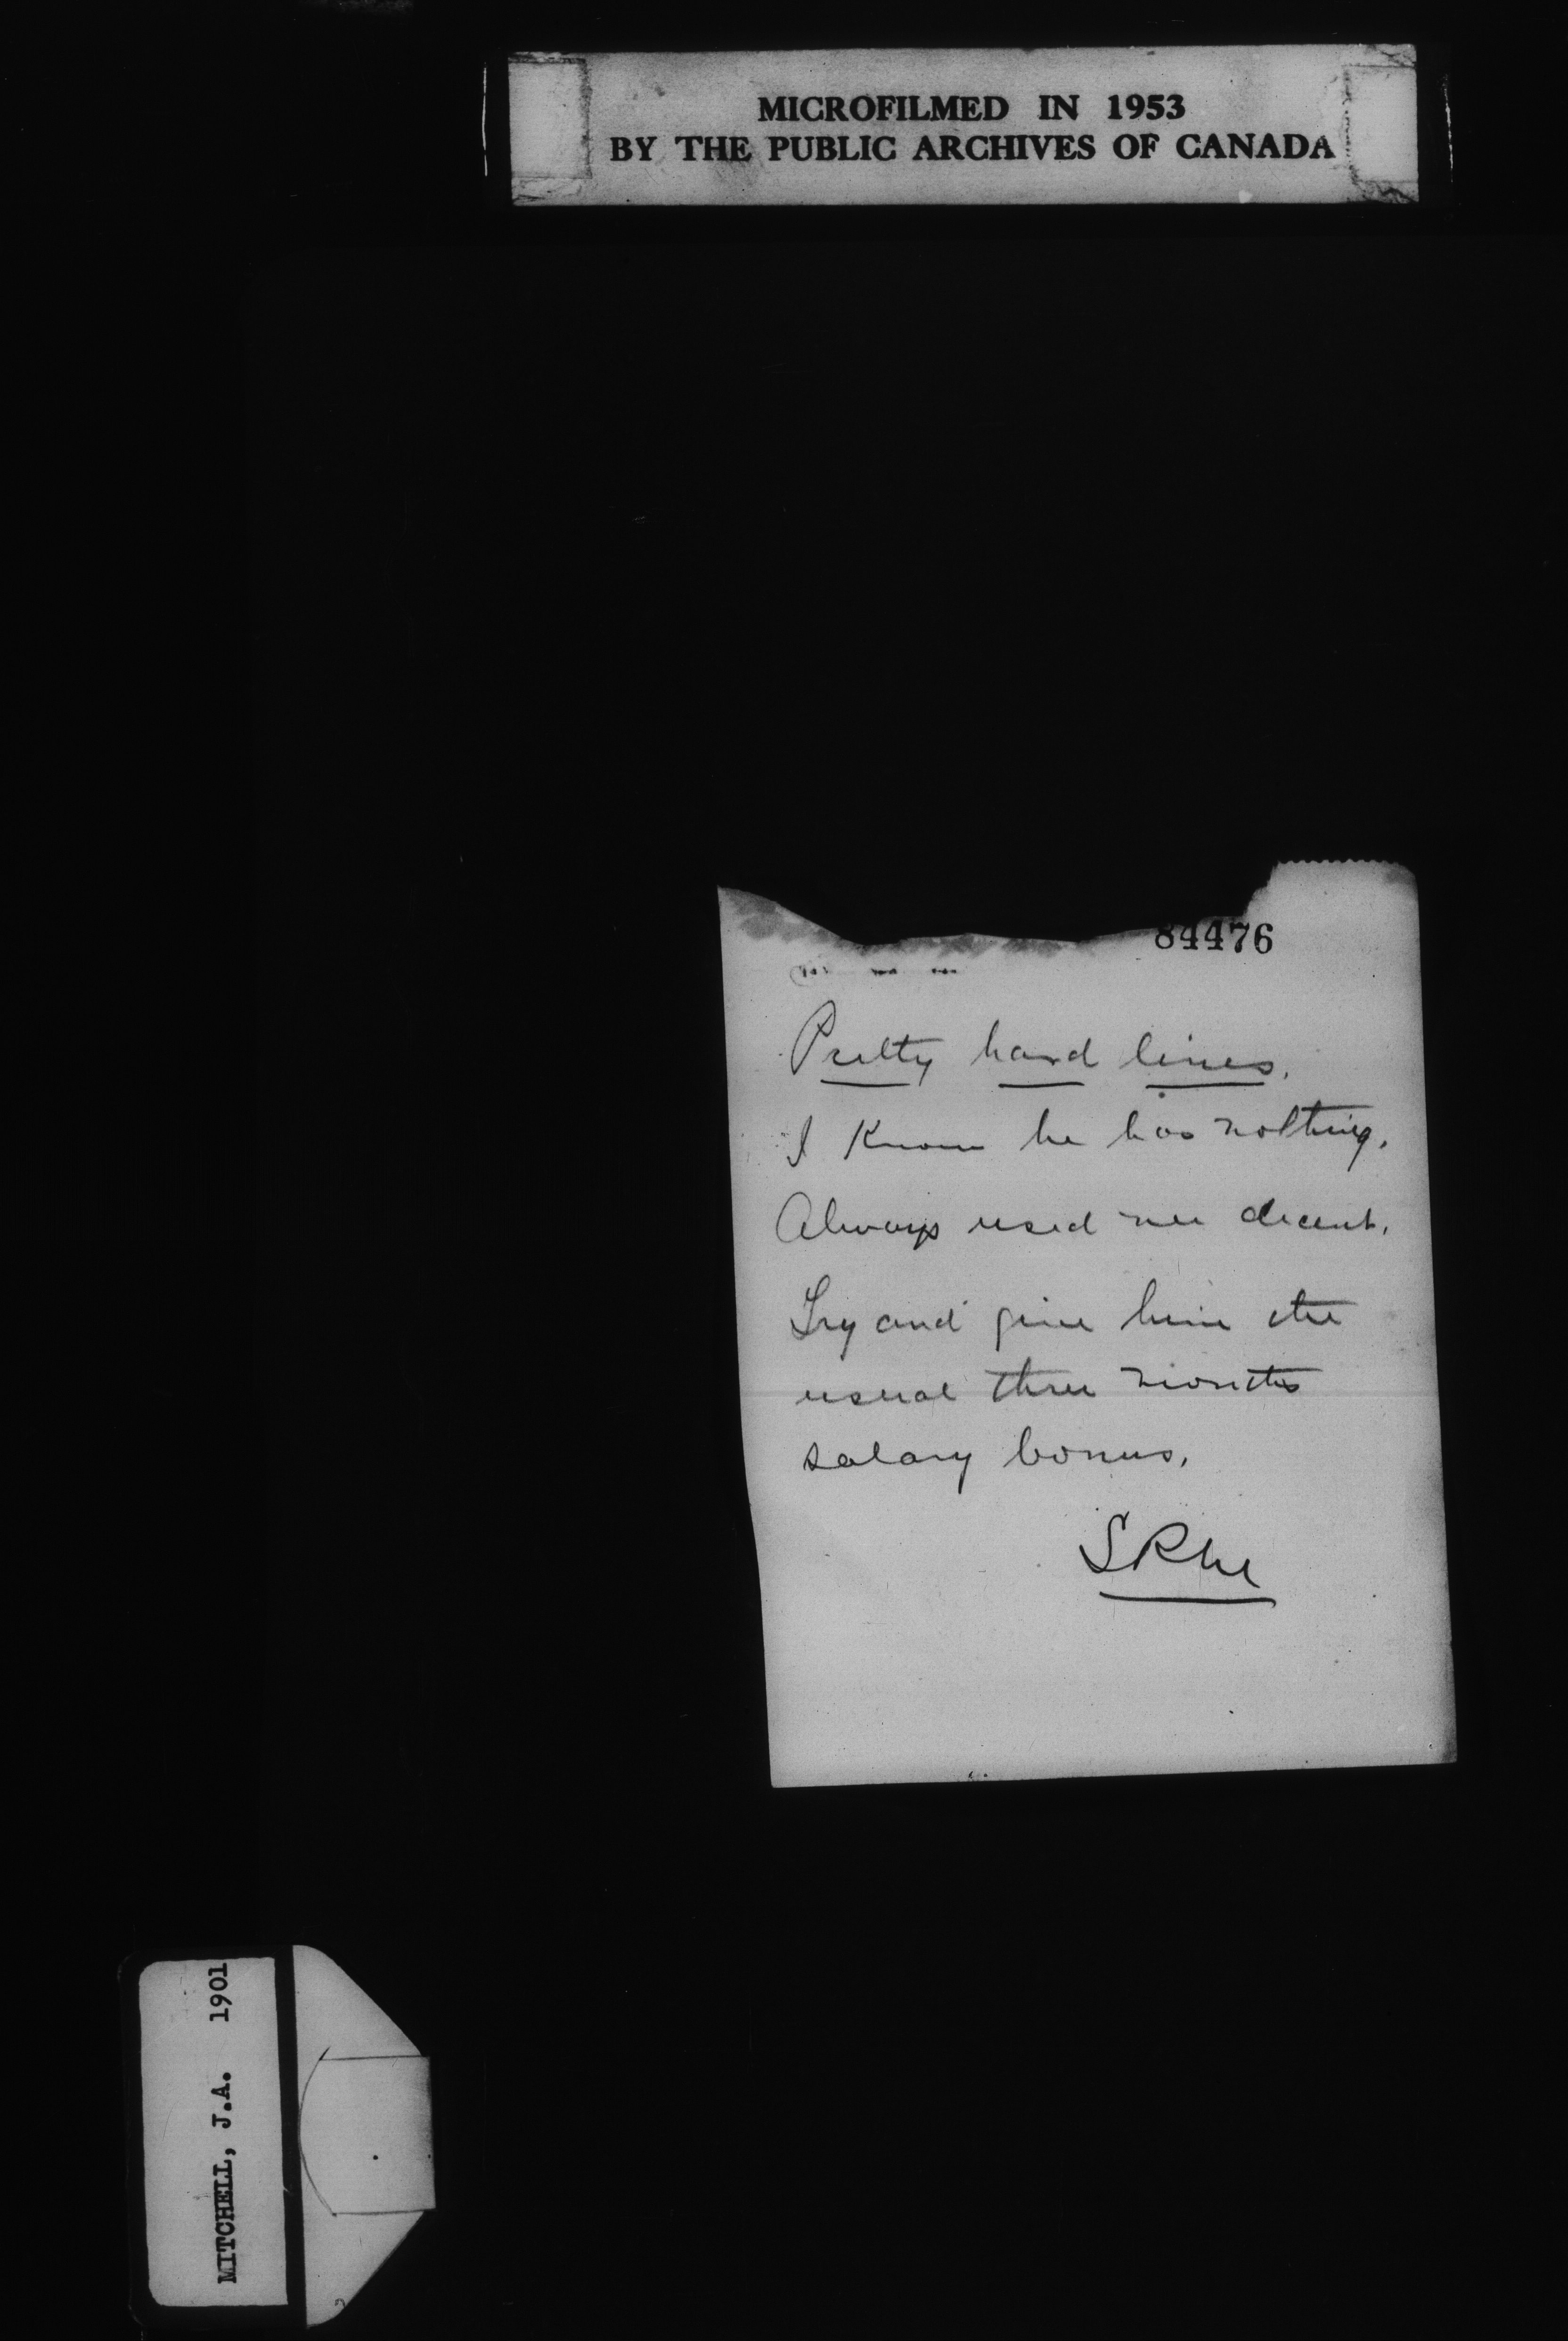 MICROFILMED IN 1953
BY THE PUBLIC ARCHIVES OF CANADA
84476
Pretty hard lines.
I Know he has nothing.
Always used me decent.
Try and give him the
usual three months
salary bonus.
MITCHELL, J.A. 1901